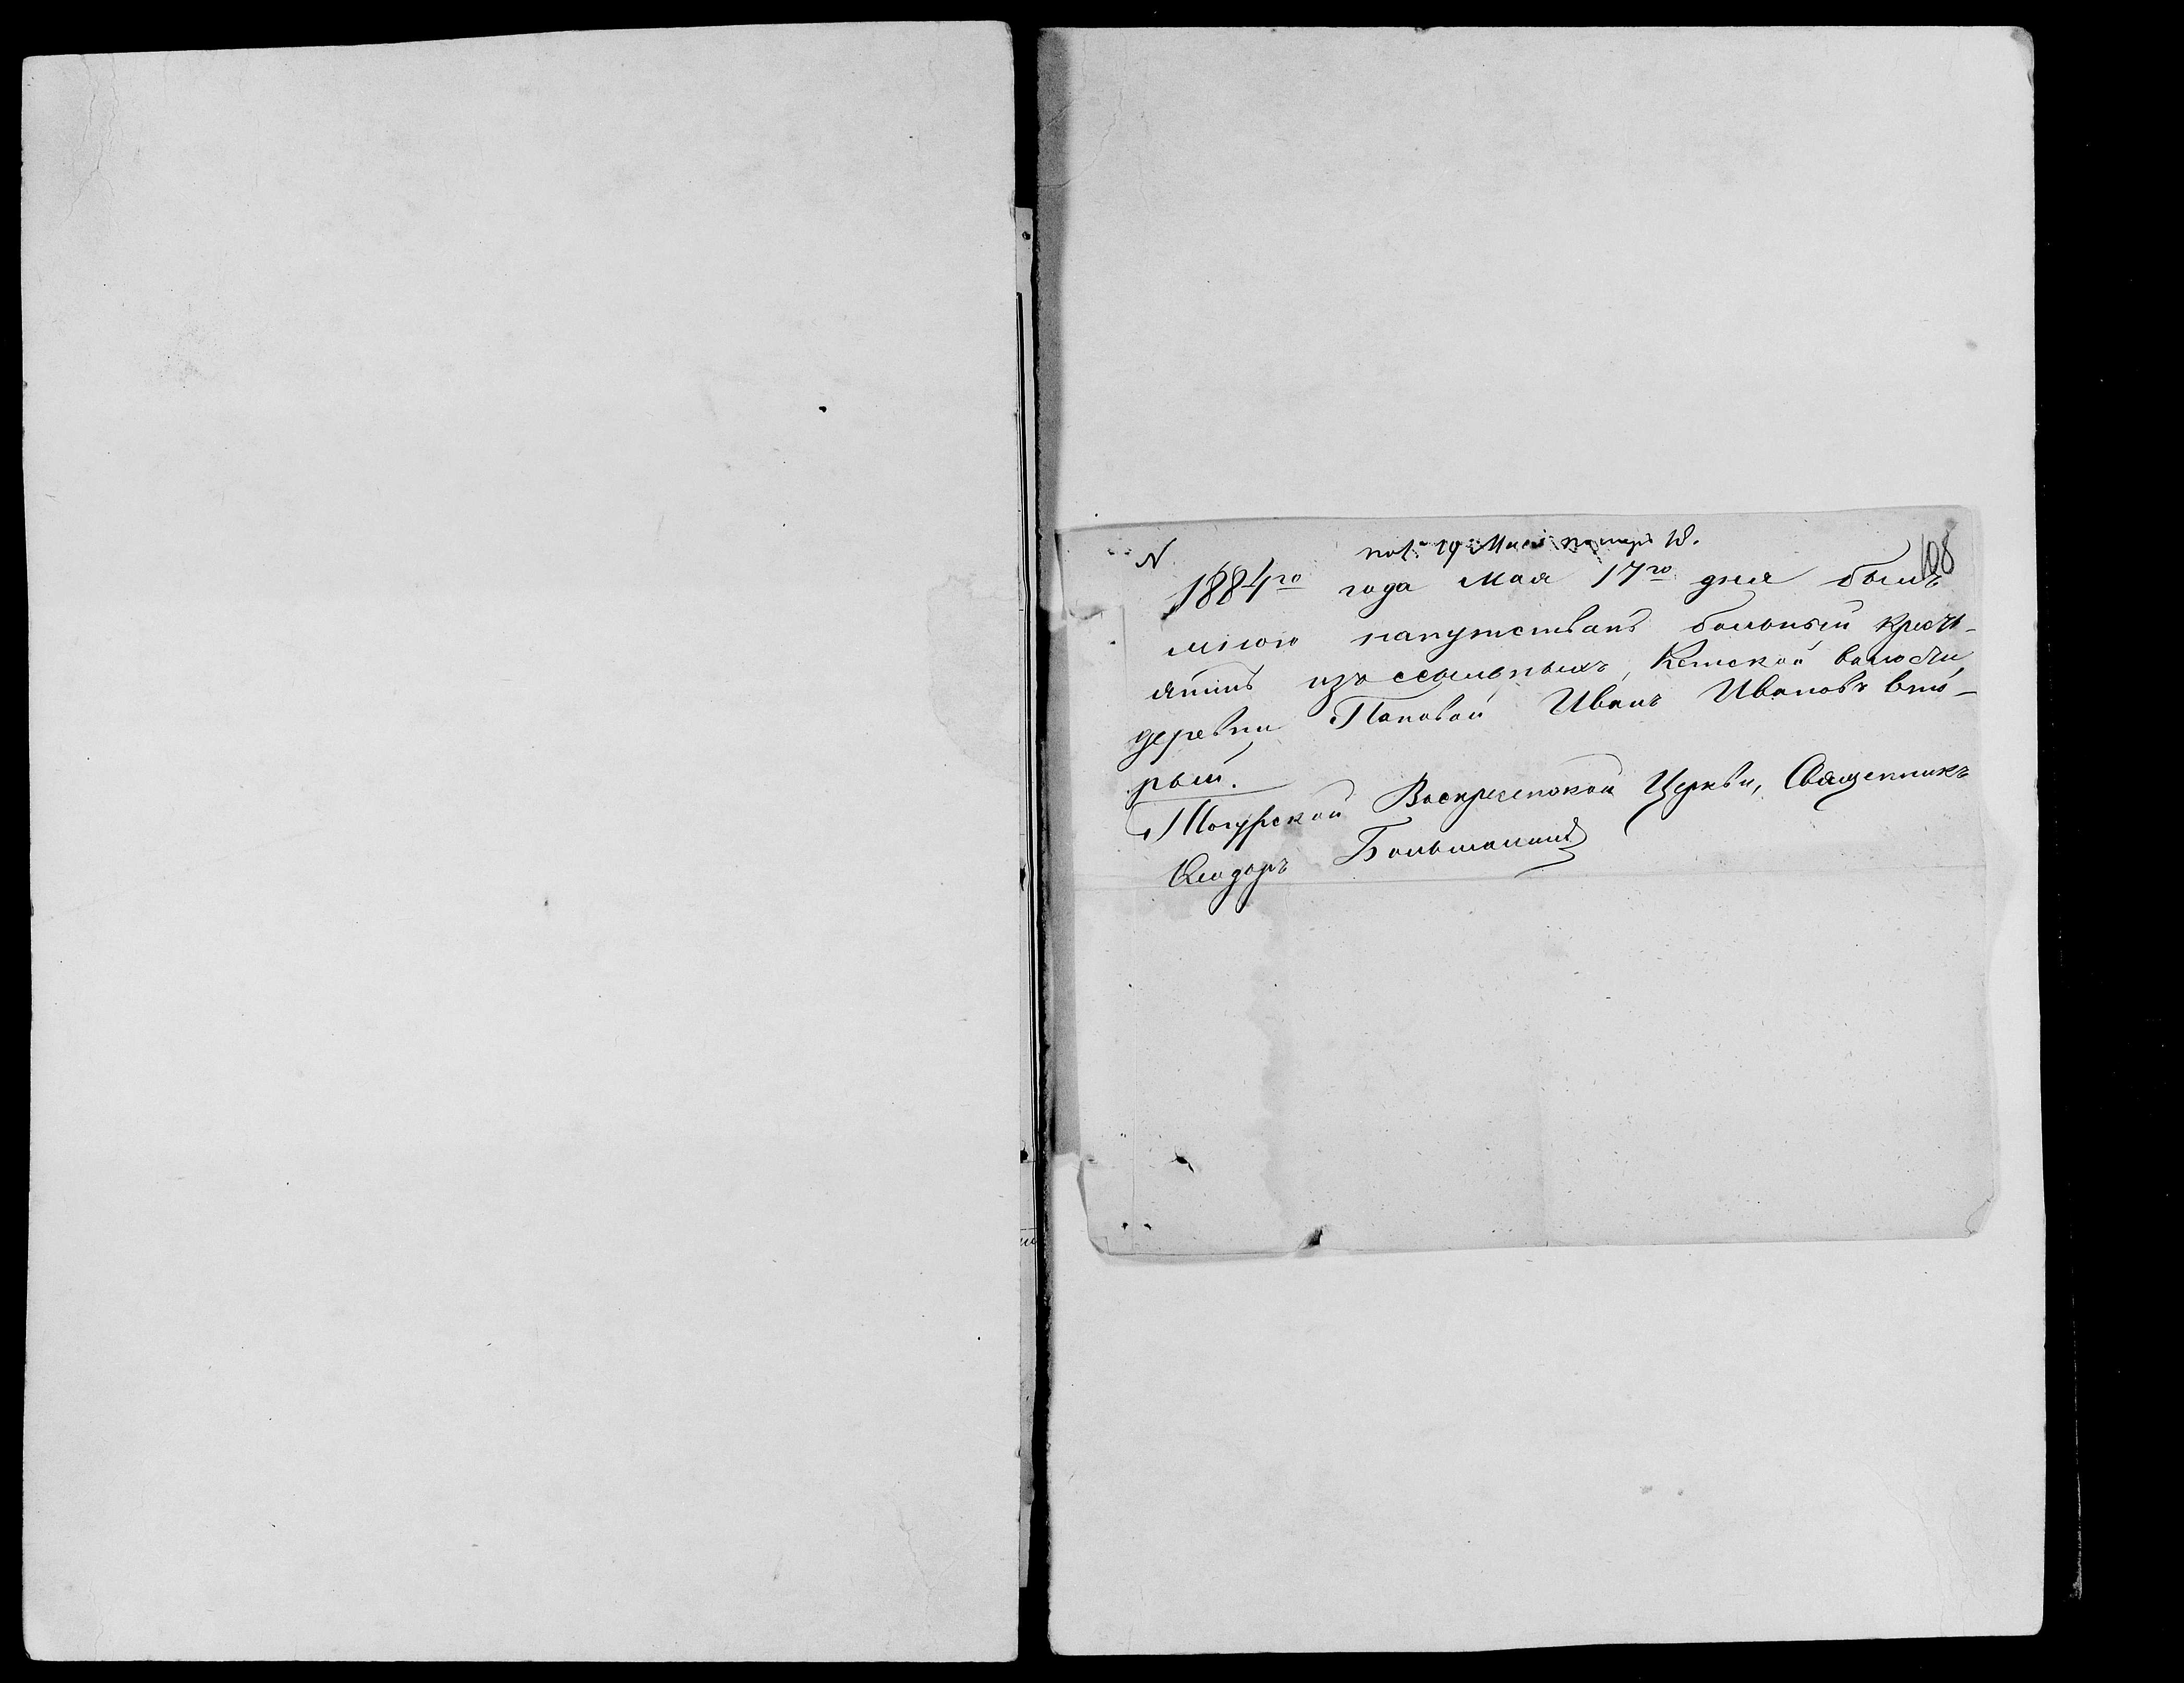 108
N
1884го года Мая 17го дня былъ
мною напутстванъ больный кресть-
янинъ изъ ссыльныхъ, Кетской волости,
деревни Пановой Иванъ Ивановъ вто-
рый.
Тогурской Воскресенской Церкви, Священникъ
Большанинъ